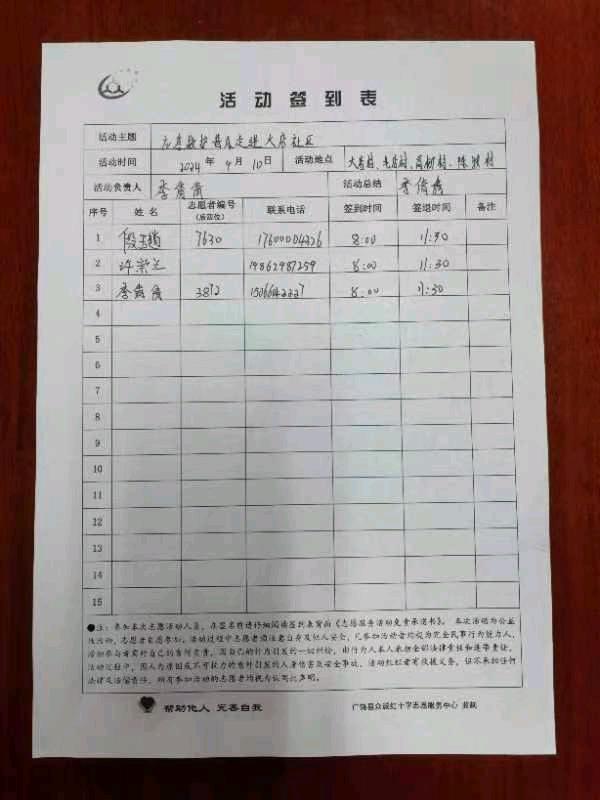 活动签到表
活动主题 应急救护普及走进大房社区
活动时间 2024年9月10日 活动地点 大房村、毛房村、
活动负责人 李 活动总结 李
序号 姓名 志愿者编号（后四位） 联系电话 签到时间 签退时间 备注
1 段 7630 17600004326 8:00 11:30
2 许崇兰 19862987259 8:00 11:30
3 李 3812 8:00 11:30
4
5
6
7
8
9
10
11
12
13
14
15
●注：参加本次志愿活动人员，在签名前请仔细阅读签到表背面《志愿服务活动免责承诺书》。本次活动为公益
性活动，志愿者自愿参加，活动过程中志愿者须注意自身及他人安全，凡参加活动者均视为完全民事行为能力人，
活动参与者需对自己的言行负责，因自己的行为引发的一切纠纷，由行为人本人承担全部法律责任和连带责任。
活动过程中，因人为原因或不可抗力的意外引发的人身伤害及安全事故，活动组织者有救援义务，但不承担任何
法律及活动责任，所有参加活动的志愿者均视为认可此声明。
帮助他人 完善自我 广饶县众诚红十字志愿服务中心